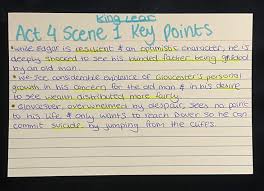 King Lear
Act 4 Scene 1 Key Points
• While Edgar is resilient & an optimistic character, he is
deeply shocked to see his blinded father being guided
by an old man.
• We see considerable evidence of Gloucester's personal
growth in his concern for the old man & in his desire
to see wealth distributed more fairly.
• Gloucester, overwhelmed by despair, sees no point
to his life & only wants to reach Dover so he can
commit suicide by jumping from the cliffs.